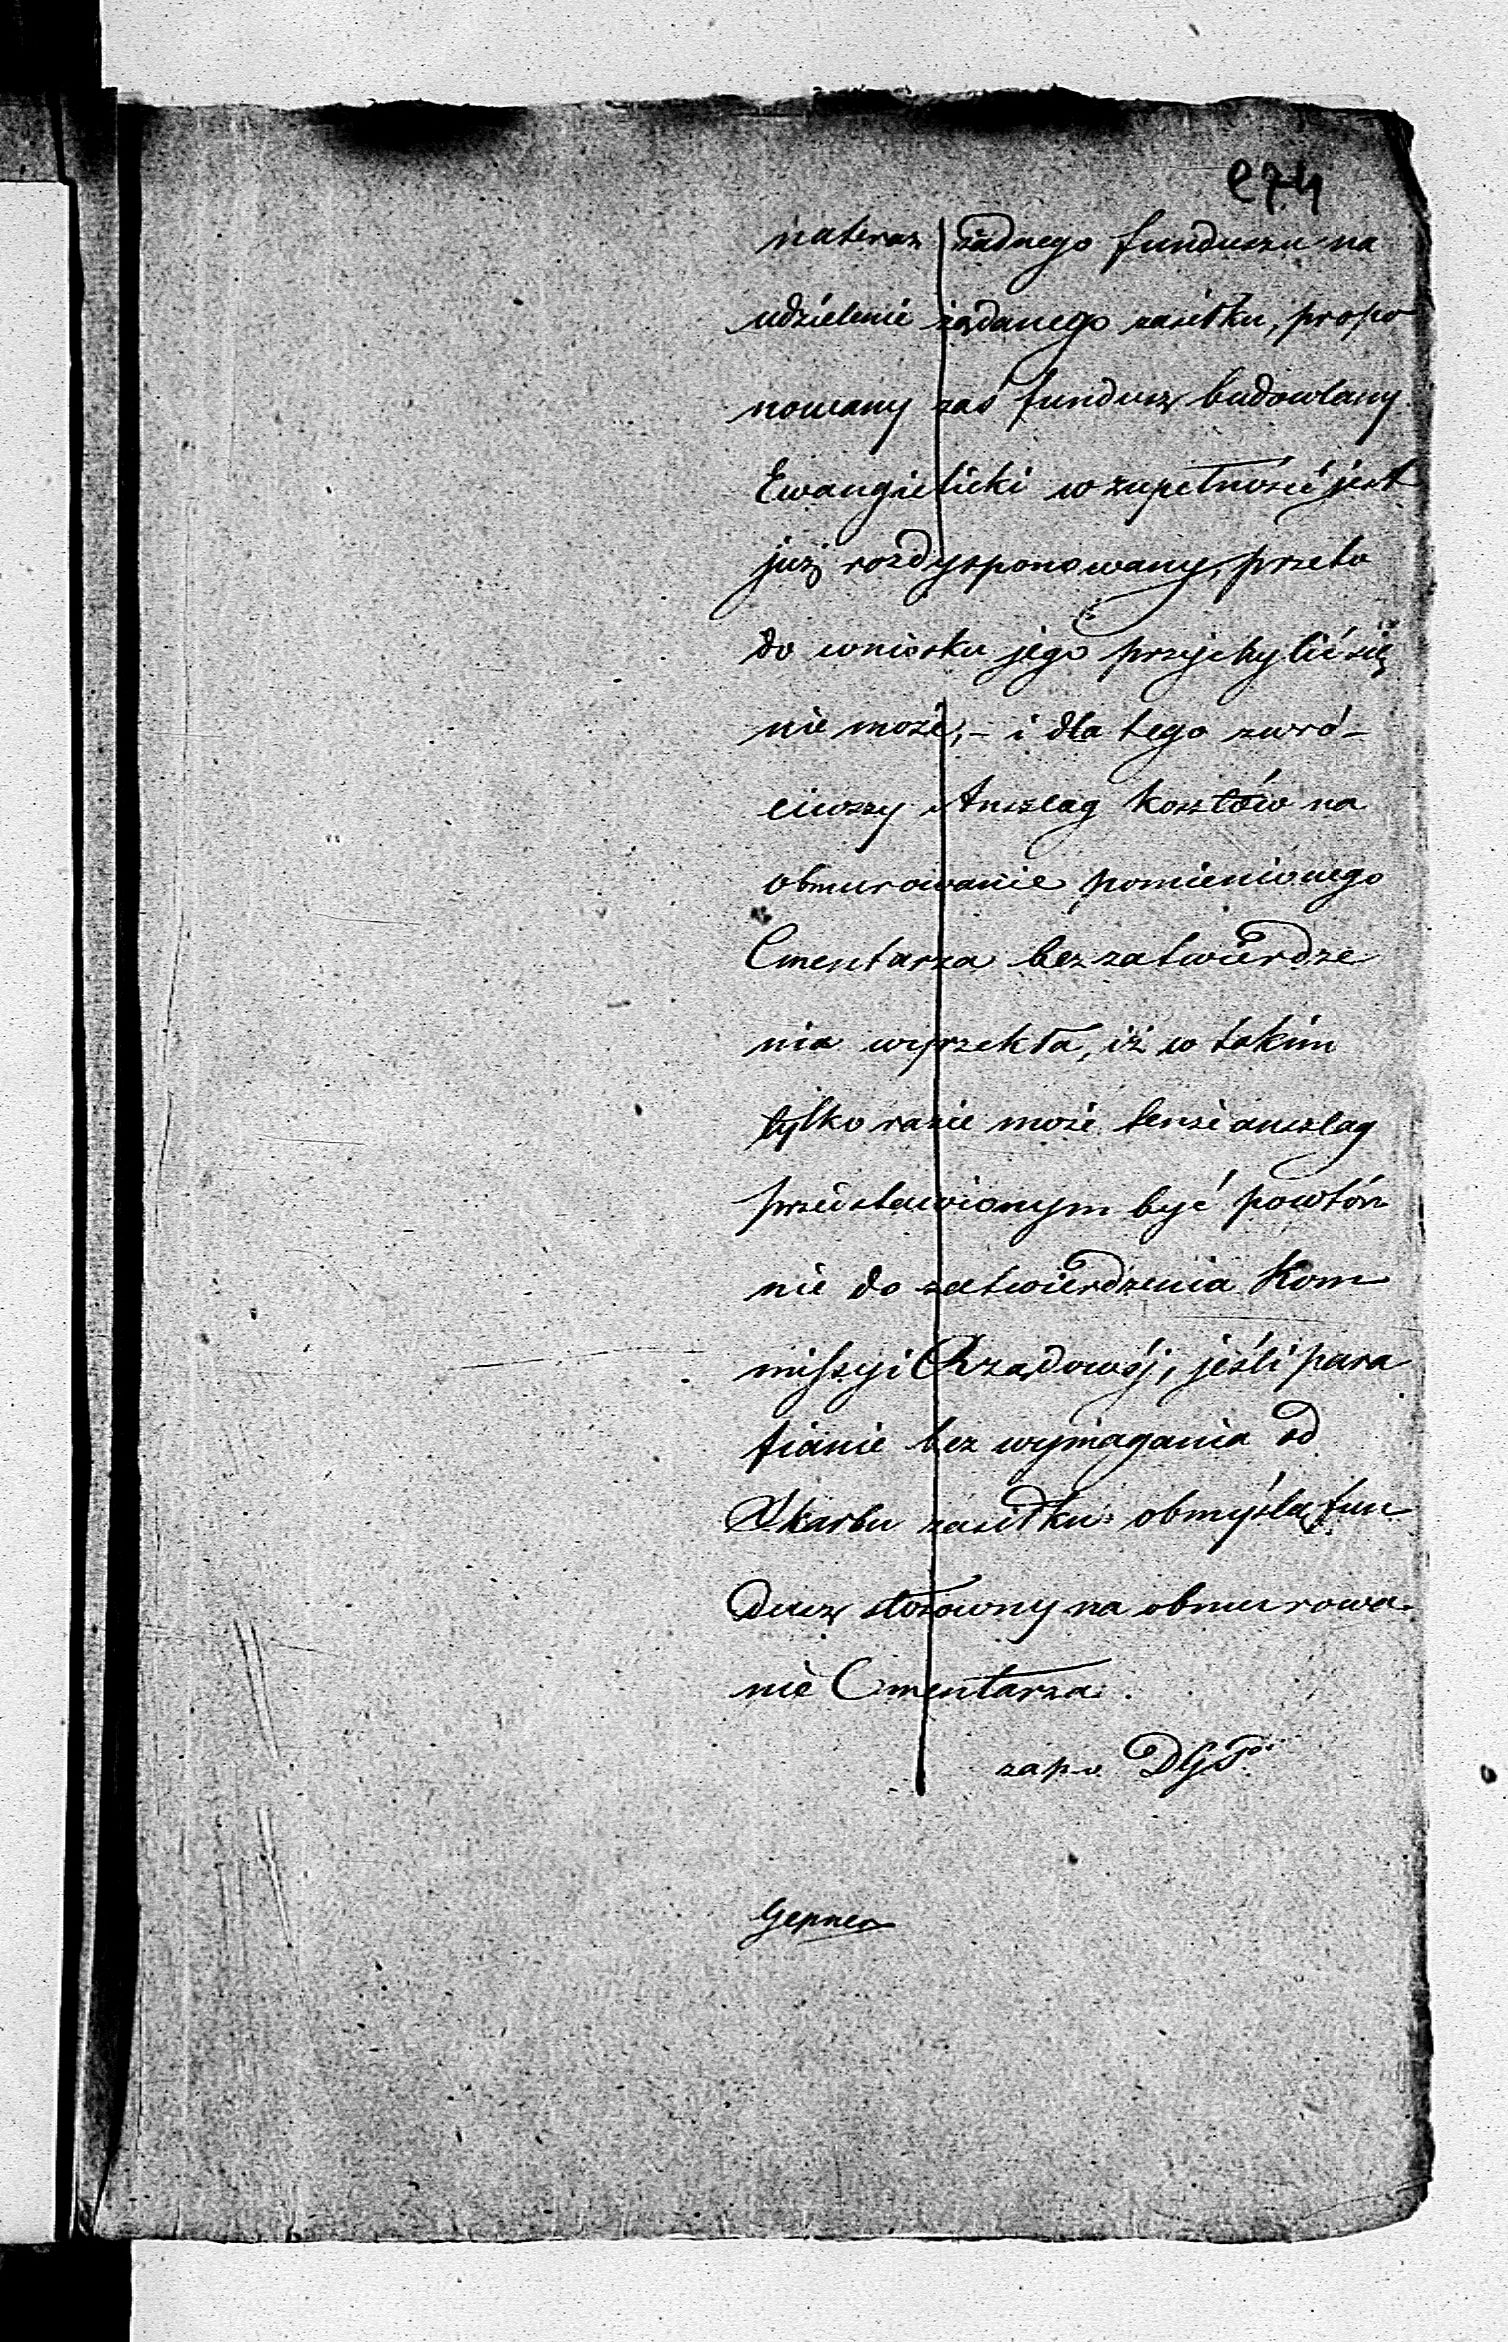 274
nateraz żadnego funduszu na
udzielenie żądanego zasiłku, propo
nowany zaś fundusz budowlany
Ewangielicki w zupełności jest
już rozdysponowany, przeto
do wniosku jego przychylić się
nie może; – i dla tego zwró-
ciwszy Anszlag kosztów na
obmurowanie pomienionego
Cmentarza bez zatwierdze
nia wyrzekła, iż w takim
tylko razie może tenże anszlag
przedstawionym być powtór
nie do zatwierdzenia Kom
missyi Rządowéj, jeśli para
fianie bez wymagania od
Skarbu zasiłku obmyślą fun
dusz stosowny na obmurowa
nie Cmentarza.
za p.o. DGP.
Gepner